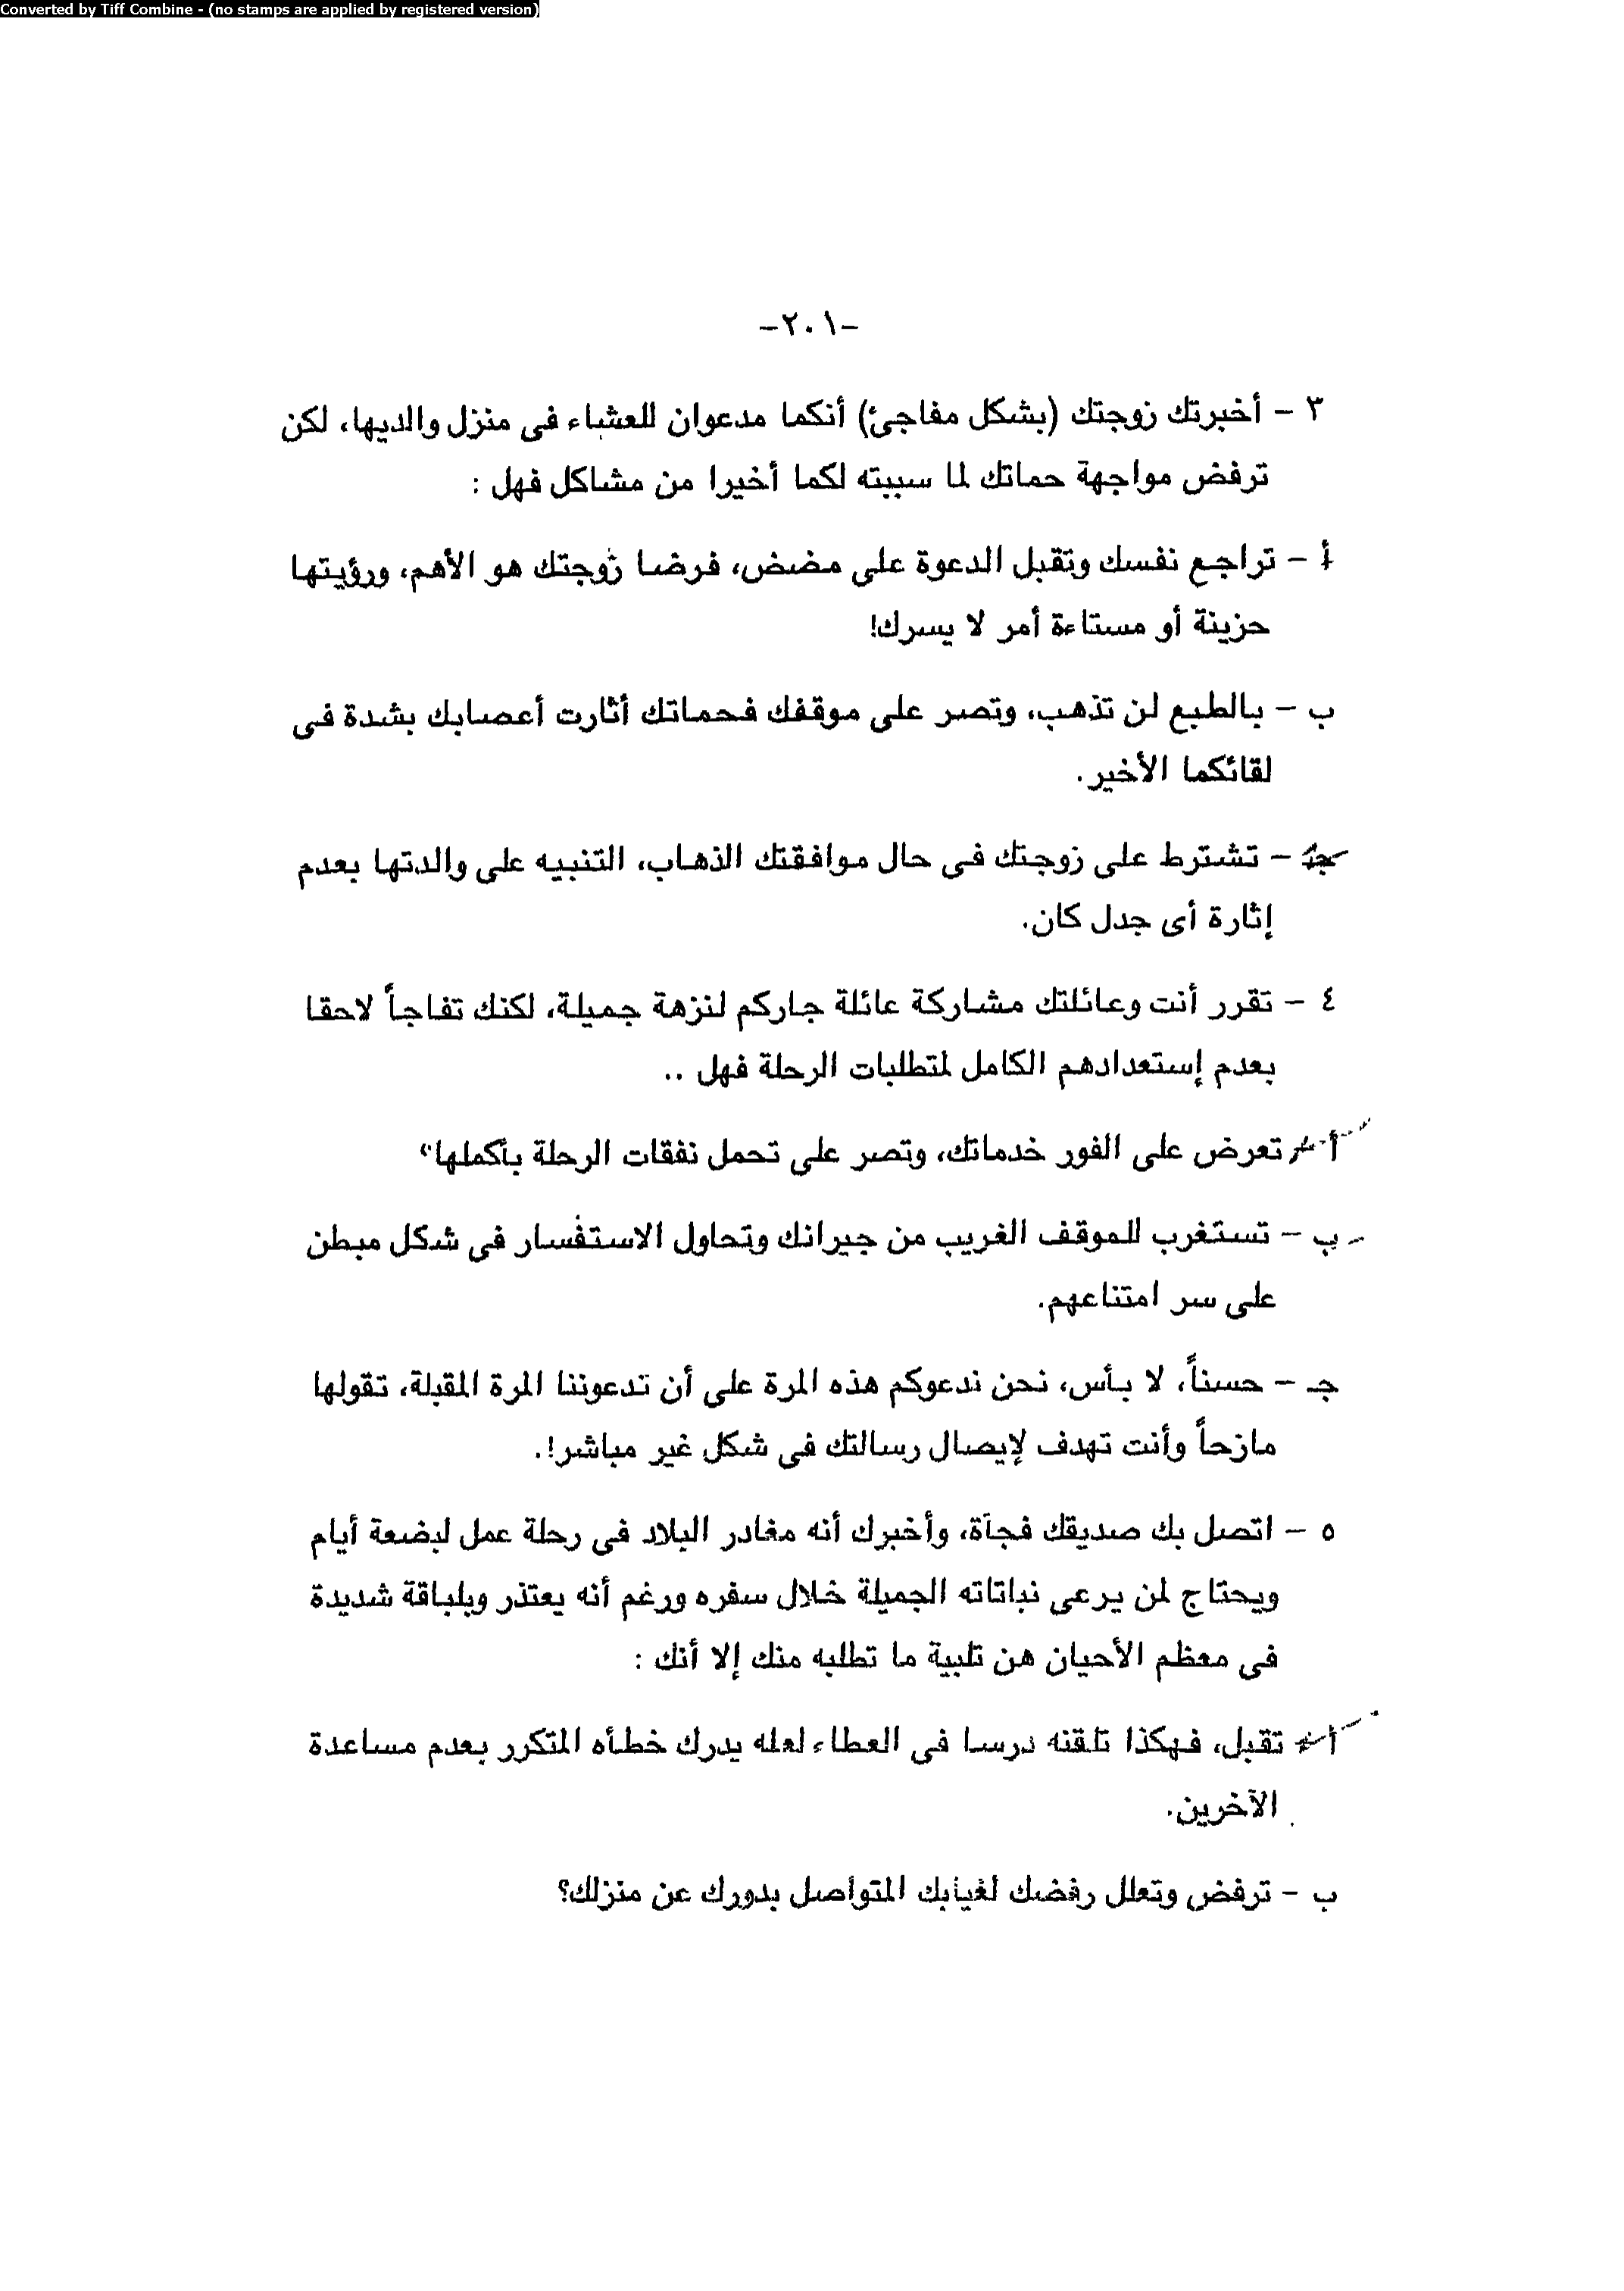 Converted by Tiff Combine - (no stamps are applied by registered version)
-٢٠١-
٣ - أخبرتك زوجتك (بشكل مفاجئ) أنكما مدعوان للعشاء فى منزل والديها، لكن
ترفض مواجهة حماتك لما سببته لكما أخيرا من مشاكل فهل :
أ - تراجع نفسك وتقبل الدعوة على مضض، فرضا زوجتك هو الأهم، ورؤيتها
حزينة أو مستاءة أمر لا يسرك!
ب - بالطبع لن تذهب، وتصر على موقفك فحماتك أثارت أعصابك بشدة فى
لقائكما الأخير.
جـ - تشترط على زوجتك فى حال موافقتك الذهاب، التنبيه على والدتها بعدم
إثارة أى جدل كان.
٤ - تقرر أنت وعائلتك مشاركة عائلة جاركم لنزهة جميلة، لكنك تفاجأ لاحقا
بعدم إستعدادهم الكامل لمتطلبات الرحلة فهل ..
أ - تعرض على الفور خدماتك، وتصر على تحمل نفقات الرحلة بأكملها"
ب - تستغرب للموقف الغريب من جيرانك وتحاول الاستفسار فى شكل مبطن
على سر امتناعهم.
جـ - حسناً، لا بأس، نحن ندعوكم هذه المرة على أن تدعوننا المرة المقبلة، تقولها
مازحاً وأنت تهدف لإيصال رسالتك فى شكل غير مباشر!.
٥ - اتصل بك صديقك فجآة، وأخبرك أنه مغادر البلاد فى رحلة عمل لبضعة أيام
ويحتاج لمن يرعى نباتاته الجميلة خلال سفره ورغم أنه يعتذر وبلباقة شديدة
فى معظم الأحيان هن تلبية ما تطلبه منك إلا أنك :
أ - تقبل، فهكذا تلقنه درسا فى العطاء لعله يدرك خطأه المتكرر بعدم مساعدة
الآخرين.
ب - ترفض وتعلل رفضك لغيابك المتواصل بدورك عن منزلك؟